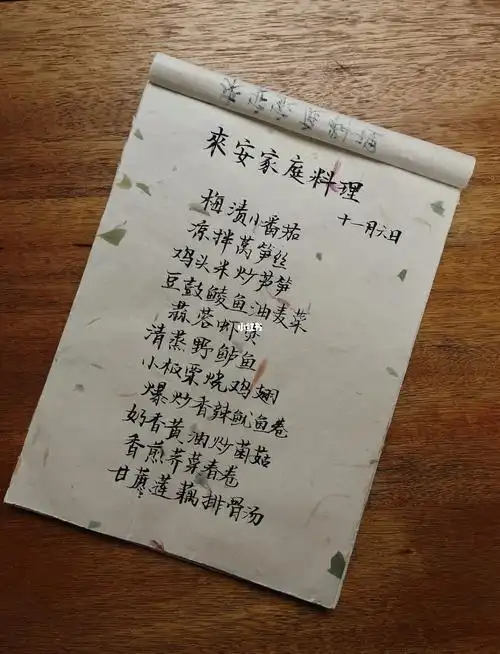 來安家庭料理
十一月六日
梅渍小番茄
凉拌莴笋丝
鸡头米炒芦笋
豆鼓鲮鱼油麦菜
蒜蓉虾
清蒸野鲈鱼
小板栗烧鸡翅
爆炒香辣鱿鱼卷
奶香黄油炒菌菇
香煎荠菜春卷
甘蔗莲藕排骨汤
小红书